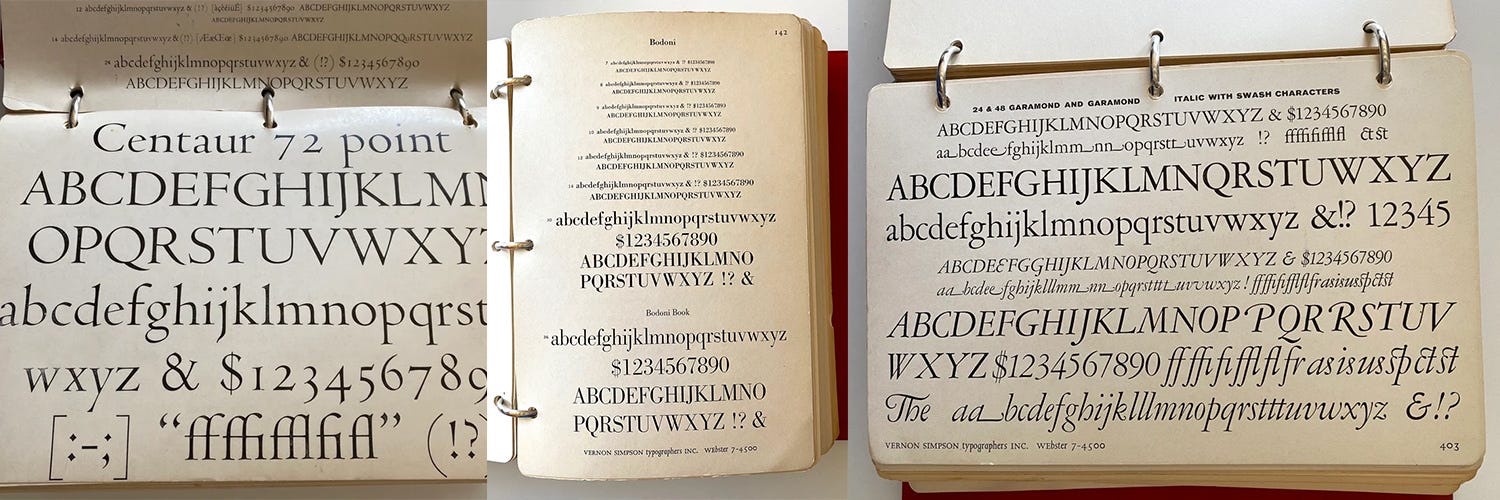 12 abcdefghijklmnopqrstuvwxyz & (!?) [àçèéîüÊ] $1234567890 ABCDEFGHIJKLMNOPQRSTUVWXYZ
ABCDEFGHIJKLMNOPQRSTUVWXYZ
14 abcdefghijklmnopqrstuvwxyz & (!?) [ÆæŒœ] $1234567890 ABCDEFGHIJKLMNOPQQuRSTUVWXYZ
abcdefghijklmnopqrstuvwxyz & (!?) $1234567890
ABCDEFGHIJKLMNOPQRSTUVWXYZ
Centaur 72 point
ABCDEFGHIJKLMN
OPQRSTUVWXYZ
abcdefghijklmnopqrst
wxyz & $1234567890
[:-;] “ffffifflfifl” (!?)
142
Bodoni
7 abcdefghijklmnopqrstuvwxyz & !? $1234567890
ABCDEFGHIJKLMNOPQRSTUVWXYZ
8 abcdefghijklmnopqrstuvwxyz & !? $1234567890
ABCDEFGHIJKLMNOPQRSTUVWXYZ
9 abcdefghijklmnopqrstuvwxyz & !? $1234567890
ABCDEFGHIJKLMNOPQRSTUVWXYZ
10 abcdefghijklmnopqrstuvwxyz & !? $1234567890
ABCDEFGHIJKLMNOPQRSTUVWXYZ
12 abcdefghijklmnopqrstuvwxyz & !? $1234567890
ABCDEFGHIJKLMNOPQRSTUVWXYZ
14 abcdefghijklmnopqrstuvwxyz & !? $1234567890
ABCDEFGHIJKLMNOPQRSTUVWXYZ
abcdefghijklmnopqrstuvwxyz
$1234567890
ABCDEFGHIJKLMNO
PQRSTUVWXYZ !? &
Bodoni Book
abcdefghijklmnopqrstuvwxyz
$1234567890
ABCDEFGHIJKLMNO
PQRSTUVWXYZ !? &
VERNON SIMPSON typographers INC. WEbster 7-4500
24 & 48 GARAMOND AND GARAMOND ITALIC WITH SWASH CHARACTERS
ABCDEFGHIJKLMNOPQRSTUVWXYZ & $1234567890
aa_bcdee_fghijklmm_nn_opqrstt_uvwxyz !? fffffiflffiffl ctst
ABCDEFGHIJKLMNQRSTUVWXYZ
abcdefghijklmnopqrstuvwxyz &!? 12345
ABCDEEFGGHIJKLMNOPQRSTUVWXYZ & $1234567890
ABCDEFGHIJKLMNOPPQRRSTUV
WXYZ $1234567890 ffffififflflfrasisusspctst
The aa_bcdefghijklllmnopqrstttuvwxyz &!?
VERNON SIMPSON typographers INC. WEbster 7-4500
403